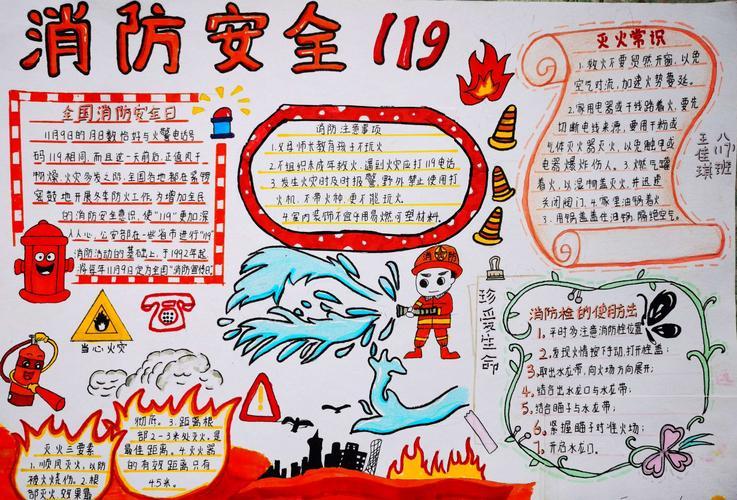 消防安全 119
全国消防安全日
11月9日的月日数恰好与火警电话号
码119相同,而且这一天前后,正值风干
物燥、火灾易发之际,全国各地都在紧锣
密鼓地开展冬季防火工作。为增加全民
的消防安全意识,使"119"更加深
入人心,公安部在一些省市进行"119"
消防活动的基础上,于1992年起,
将每年11月9日定为全国"消防宣传日"
消防注意事项
1.父母师长教育孩子不玩火
2.不组织未成年救火,遇到火灾应打119电话。
3.发生火灾时及时报警,野外禁止使用打
火机,不带火种,更不能玩火。
4.室内装饰不宜用易燃可塑材料。
灭火常识
1.救火不要贸然开窗,以免
空气对流,加速火势蔓延。
2.家用电器或干线路着火,要先
切断电线来源,要用干粉或
气体灭火器灭火,以免触电或
电器爆炸伤人。3.燃气罐
着火,以湿物盖灭火,并迅速
关闭阀门。4.家里油锅着火
3.用锅盖盖住油锅,隔绝空气。
八(11)班
王佳琪
当心火灾
珍爱生命
消防栓的使用方法
1.平时多注意消防栓位置
2.发现火情按下手动,打开栓盖;
3.取出水龙带,向火场方向展开;
4.结合出水龙口与水龙带;
5.结合瞄子与水龙带;
6.紧握瞄子对准火场;
7.开启水龙口。
灭火三要素
1.顺风灭火,以防
被火烧伤。2.根
部灭火,效果最
彻底。3.距离根
部2-3米处灭火,是
最佳距离。4.灭火器
的有效距离只有
45米。